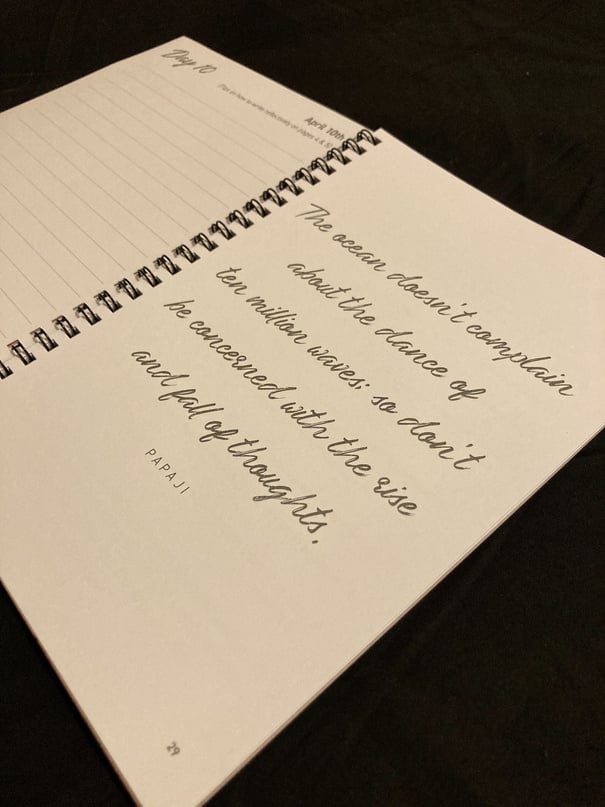 Day 10
April 10th
(Tips on how to write reflectively on pages 4 & 5)
The ocean doesn't complain
about the dance of
ten million waves; so don't
be concerned with the rise
and fall of thoughts.
PAPAJI
29